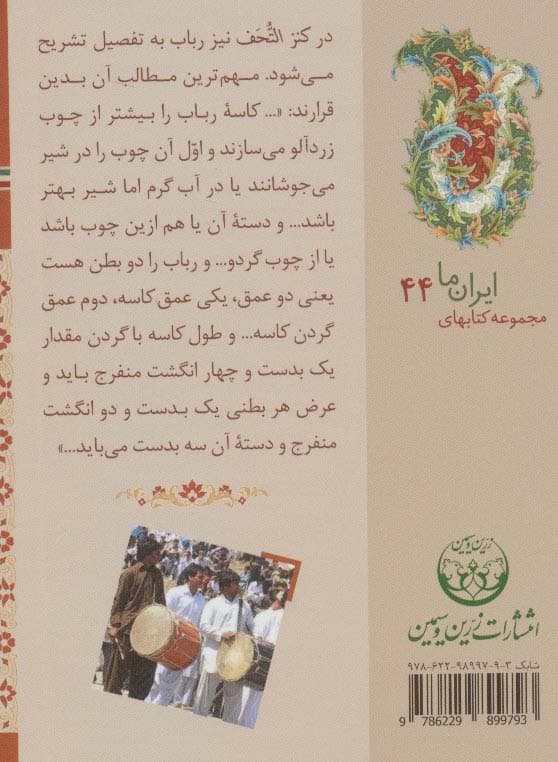 در کنز التُّحَف نیز رباب به تفصیل تشریح
می‌شود. مهم‌ترین مطالب آن بدین
قرارند: «... کاسهٔ رباب را بیشتر از چوب
زردآلو می‌سازند و اوّل آن چوب را در شیر
می‌جوشانند یا در آب گرم اما شیر بهتر
باشد... و دستهٔ آن یا هم ازین چوب باشد
یا از چوب گردو... و رباب را دو بطن هست
یعنی دو عمق، یکی عمق کاسه، دوم عمق
گردن کاسه... و طول کاسه با گردن مقدار
یک بدست و چهار انگشت منفرج باید و
عرض هر بطنی یک بدست و دو انگشت
منفرج و دستهٔ آن سه بدست می‌باید...»
ایران ما ۴۴
مجموعه کتابهای
زرین و سیمین
انتشارات زرین و سیمین
شابک ۳-۹-۹۸۹۹۷-۶۲۲-۹۷۸
9 786229 899793